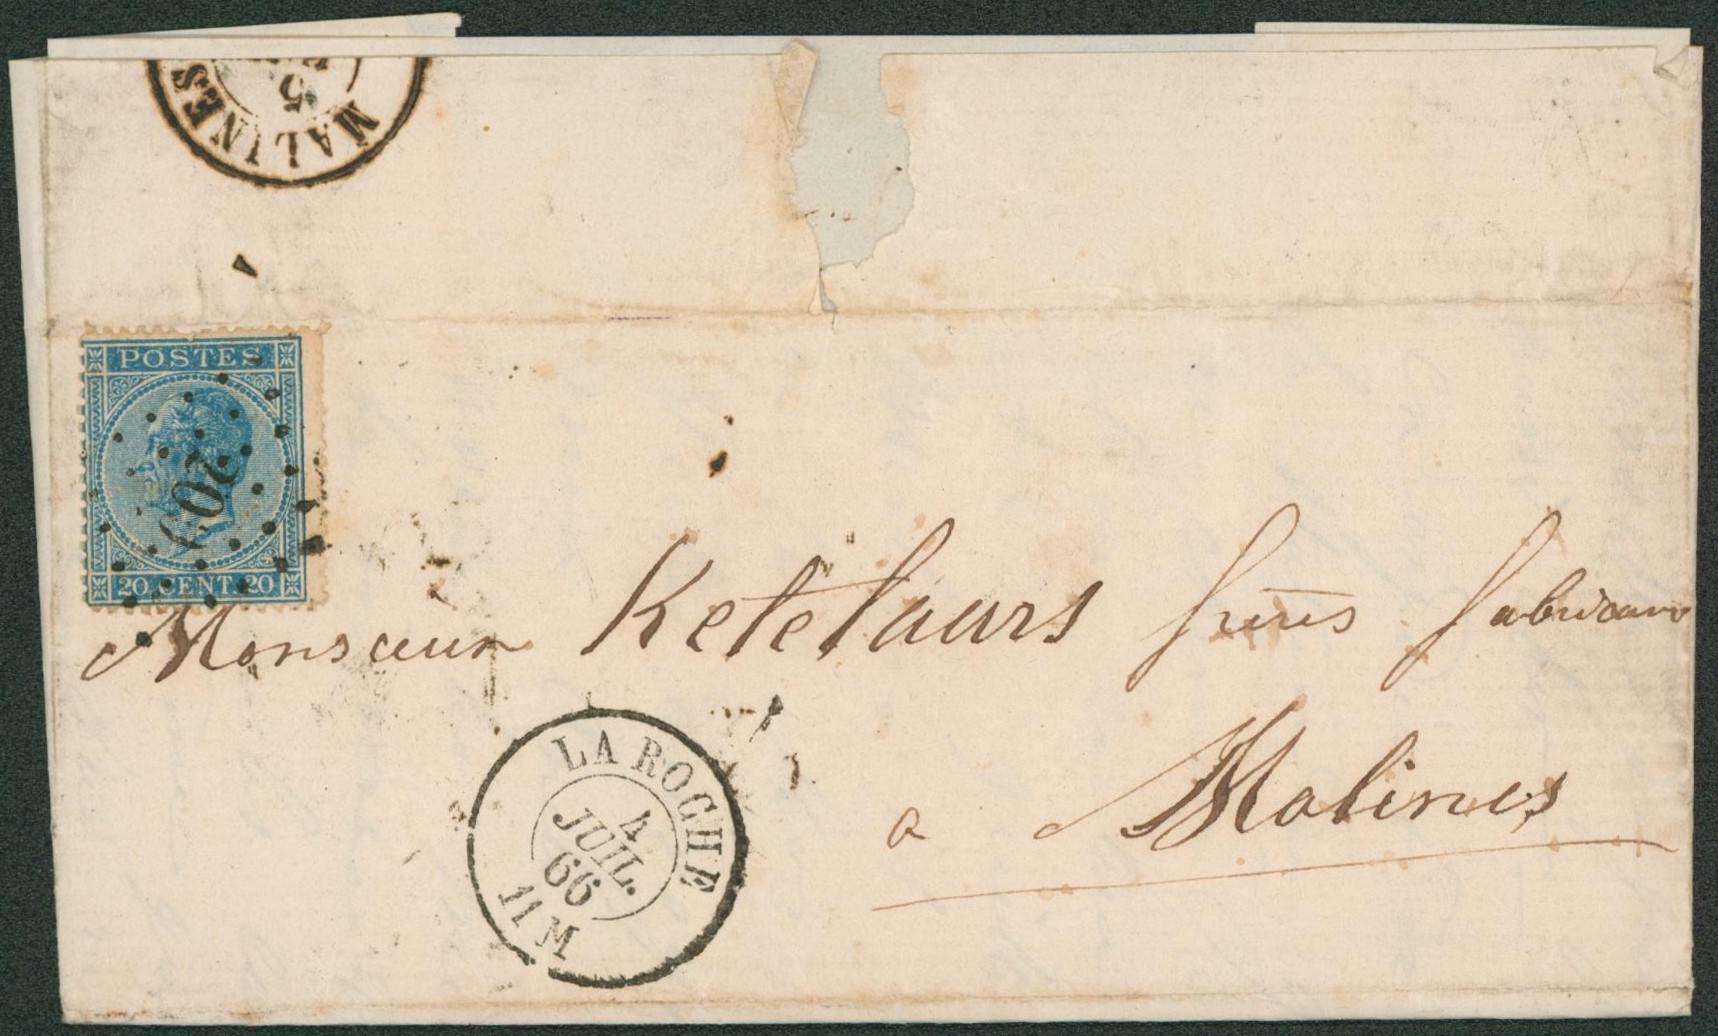 MALINES
5
POSTES
20 CENT. 20
Monsieur Ketelaars frères fabricans
a Malines
LA ROCHE
4
JUIL.
66
11 M